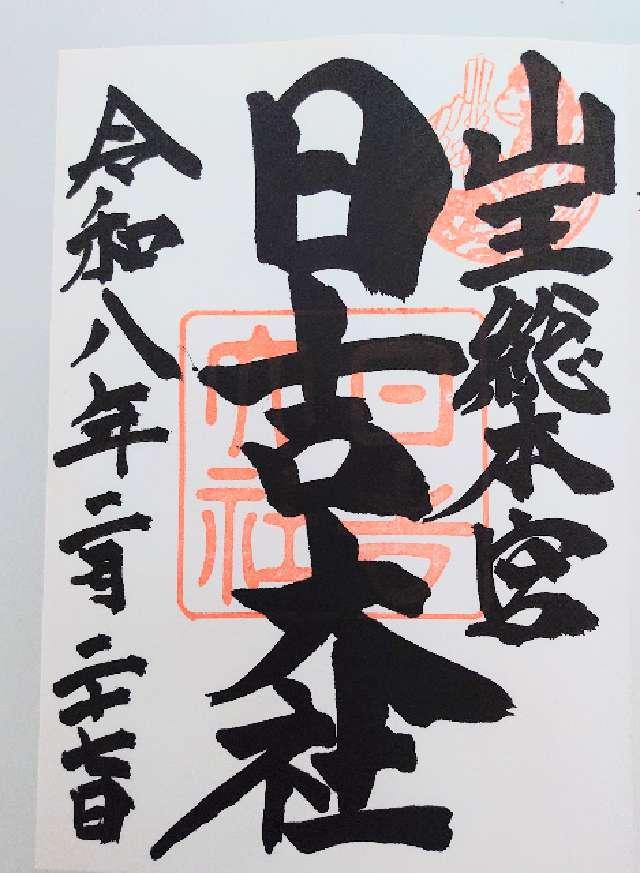 山王総本宮
日吉大社
令和八年二月二十七日
日吉大社